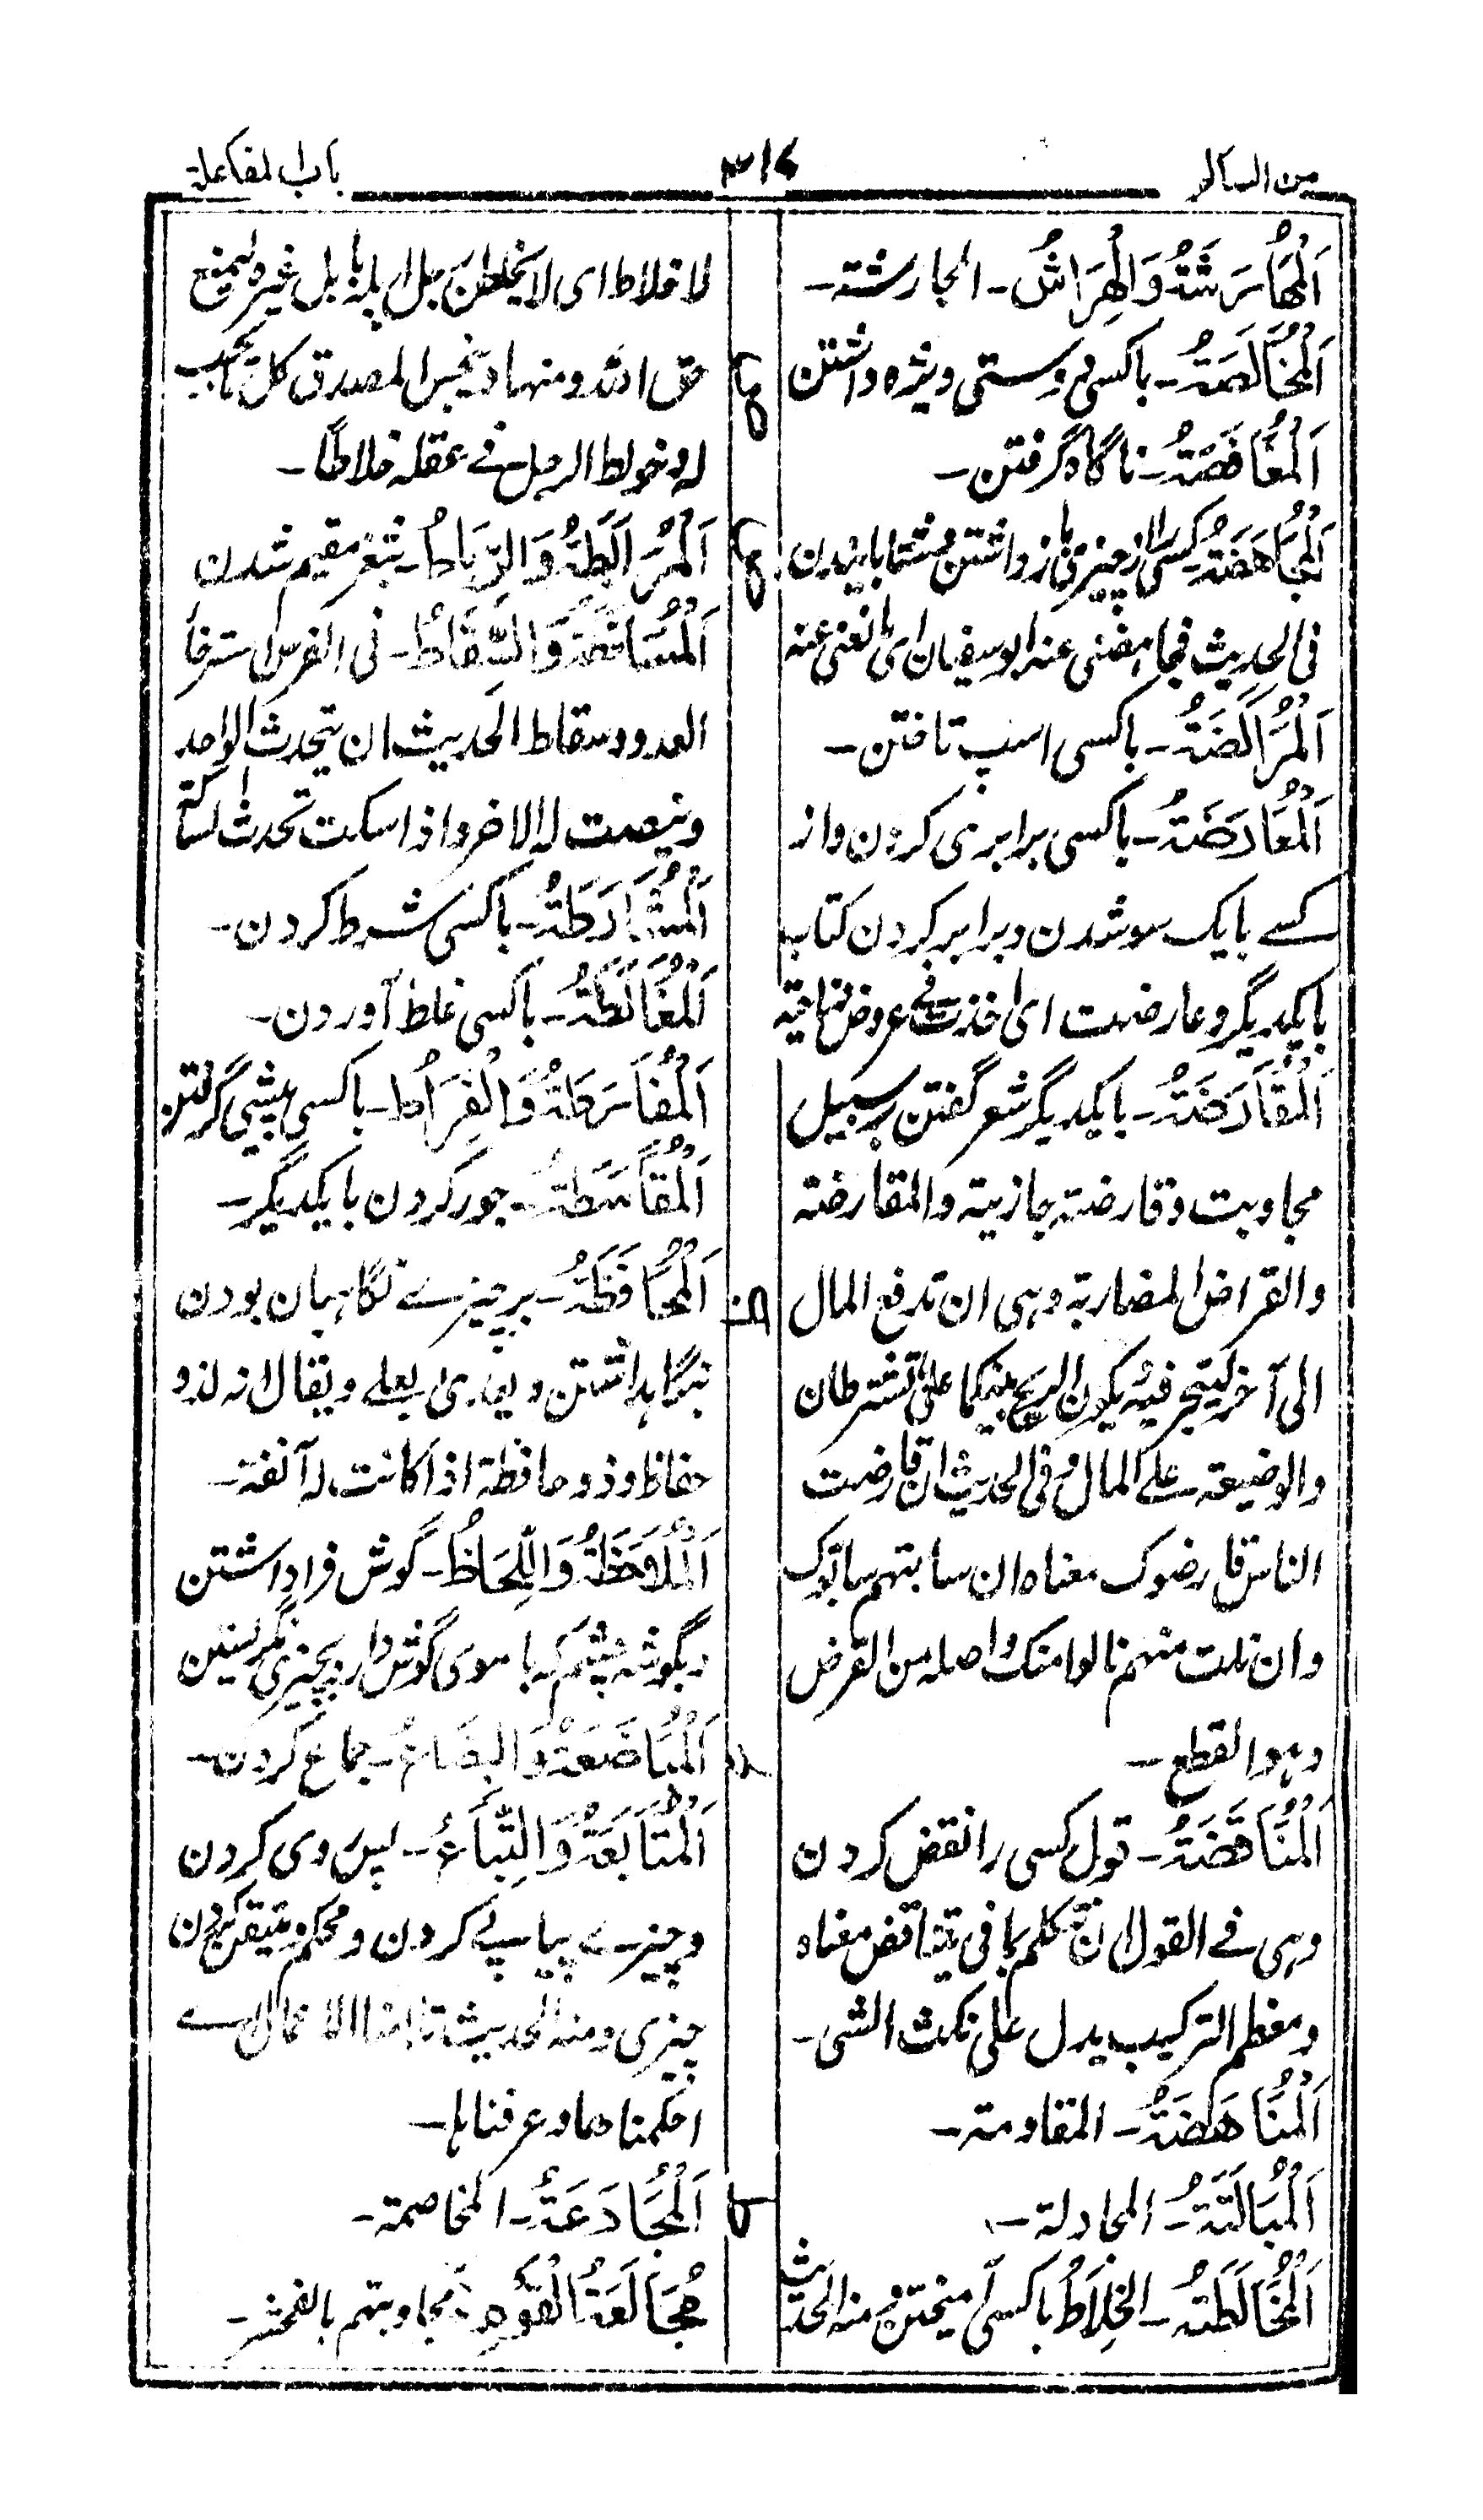 من السالم
۳۱۷
باب المفاعلة
اَلْمُهَارَشَةُ وَالْهِرَاشُ۔ المحارشتہ۔
اَلْمُخَالَصَةُ۔ باکسی دوستی ویژہ داشتن
اَلْمُغَافَصَةُ۔ ناگاہ گرفتن۔
اَلْمُجَاهَضَةُ۔ کسی را از چیزی باز داشتن و شتابانیدن
فی الحدیث فجاہضنی عنہ ابوسفیان ای مانعنی عنہ
اَلْمُرَاكَضَةُ۔ باکسی اسپ تاختن۔
اَلْمُعَارَضَةُ۔ باکسی برابری کردن واز
کسے بایک سو شدن و برابر کردن کتاب
بایکدیگر و عارضت ای اخذت فی عروض و ناحیة
اَلْمُقَارَضَةُ۔ بایکدیگر شعر گفتن بر سبیل
مجاوبت وقارضتہ جازیتہ والمقارضتہ
والقراض المضاربة وہی ان تدفع المال
الی آخر لیتجر فیہ یکون الربح بینکما علی ما تشترطان
والوضیعہ علی المال و فی الحدیث ان قارضت
الناس قارضوک معناہ ان ساببتہم سابوک
وان نلت منہم نالوا منک واصلہ من القرض
وہو القطع۔
اَلْمُنَاقَضَةُ۔ قول کسی را نقض کردن
وہی فے القول ان تتکلم بما فی یتناقض معناہ
ومعظم الترکیب یدل علی نکث الشی۔
اَلْمُنَاهَضَةُ۔ المقاومتہ۔
اَلْمُبَالَتَةُ۔ المجادلۃ۔
اَلْمُخَالَطَةُ۔ الخِلَاطُ باکسی آمیختن و منہ الحدیث
لا خلاط ای لا یخلطن رجل ابلہ بابل غیرہ لیمنع
حق اللہ ومنہا و یخبس المصدق کل ما یجب
لہ و خولط الرجل فے عقلہ خلاطاً۔
اَلْمُرَابَطَةُ وَالرِّبَاطُ۔ بثغر مقیم شدن
اَلْمُسَاقَطَةُ وَالسِّقَاطُ۔ فی الفرس استرخا
العدو وسقاط الحدیث ان یتحدث الواحد
وینصت لہ الاخر واذا سکت تحدث الساکت
اَلْمُشَارَطَةُ۔ باکسی شرط کردن۔
اَلْمُغَالَطَةُ۔ باکسی غلط آوردن۔
اَلْمُفَارَطَةُ وَالْفِرَاطُ۔ باکسی پیشی گرفتن
اَلْمُقَاسَطَةُ۔ جور کردن بایکدیگر۔
اَلْمُحَافَظَةُ۔ بر چیزے نگاہبان بودن
نگاہداشتن و یعدی بعلے ویقال انہ لذو
حفاظ و ذو محافظة اذا کانت لہ آنفتہ۔
اَلْمُلَاحَظَةُ وَاللِّحَاظُ۔ گوش فرا داشتن
وبگوشہ چشم کہ باسوی گوش دارد بچیزی نگریستن
اَلْمُبَاضَعَةُ وَالْبِضَاعُ۔ جماع کردن۔
اَلْمُتَابَعَةُ وَالتِّبَاعُ۔ پس روی کردن
و چیزے پیاپے کردن و محکم و متیقن کردن
چیزی ومنہ الحدیث تابعنا الاعمال اے
احکمناها وعرفناہا۔
اَلْمُجَادَعَةُ۔ المخاصمۃ۔
مُجَالَعَةُ الْقَوْمِ۔ مجاوبتہم بالفحش۔